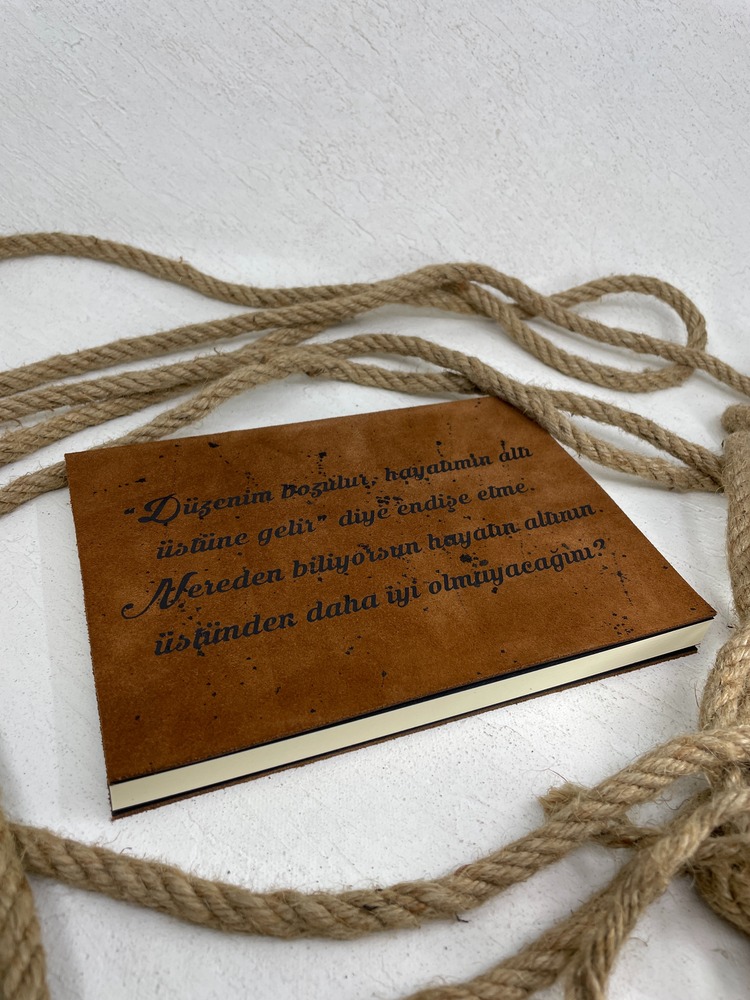 “Düzenim bozulur, hayatımın altı
üstüne gelir” diye endişe etme.
Nereden biliyorsun hayatın altının
üstünden daha iyi olmayacağını?